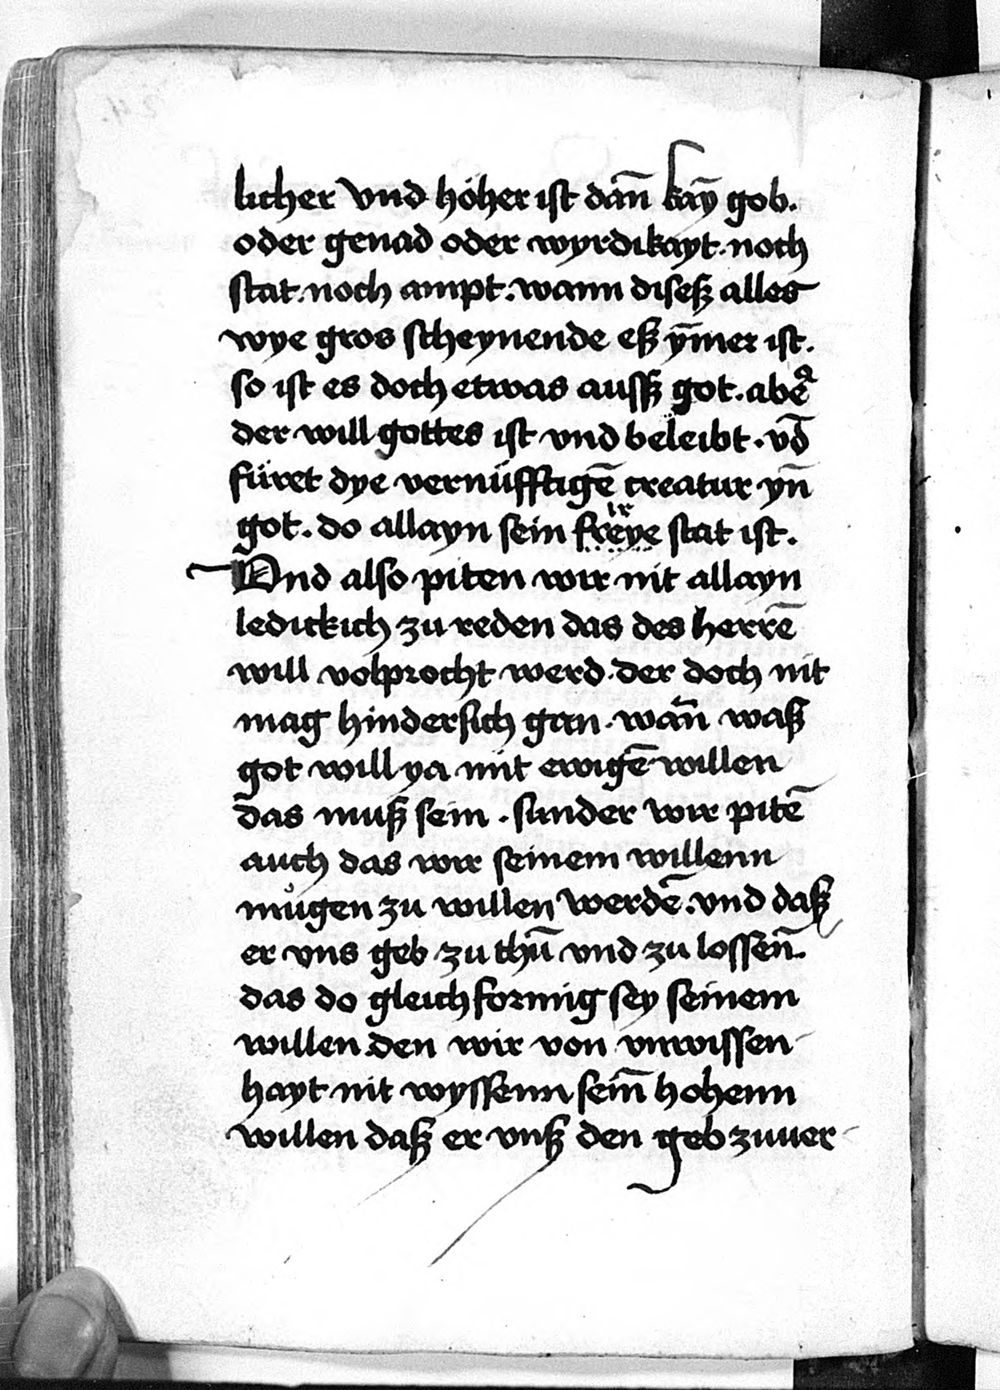 licher vnd höher ist dan̄ kaȳ gob.
oder genad oder wyrdikayt. noch
stat. noch ampt. wann diseß alles
wye gros scheynende eß ȳmer ist.
so ist es doch etwas ausß got. aber
der will gottes ist vnd beleibt. vn̄
füret dye vernüfftigē creatur yn̄
got. do allayn sein freye stat ist.
Vnd also piten wir nit allayn
ledickich zu reden das des herrē
will volprocht werd. der doch nit
mag hindersich gan. wan̄ waß
got will ya mit ewigē willen
das muß sein. sunder wir pitē
auch das wir seinem willenn
můgen zu willen werdē. vnd daß
er vns geb zu thū vnd zu lossen̄.
das do gleich formig sey seinem
willen. den wir von vnwissen
hayt nit wyssenn sein̄ hohenn
willen daß er vnß den geb zuuer